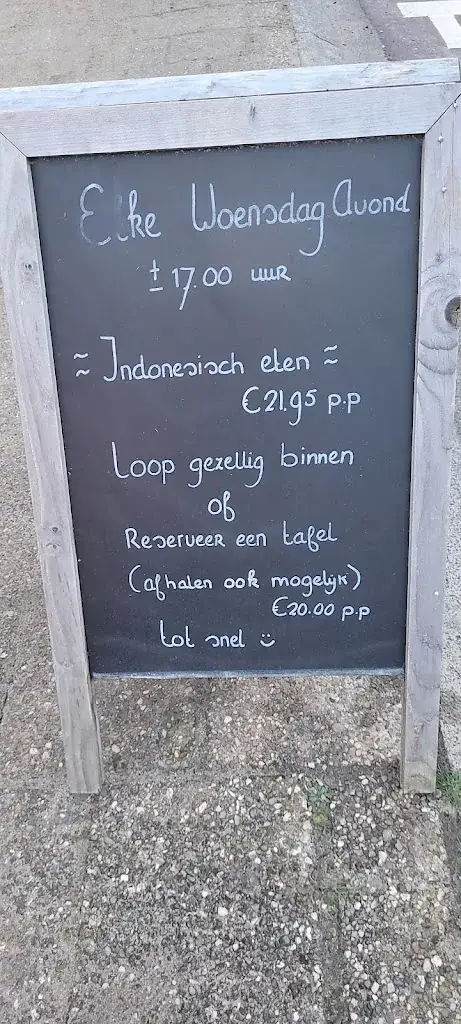 Elke Woensdag Avond
± 17.00 uur
≈ Indonesisch eten ≈
€21.95 p.p
Loop gezellig binnen
of
Reserveer een tafel
(afhalen ook mogelijk)
€20.00 p.p
tot snel ☺